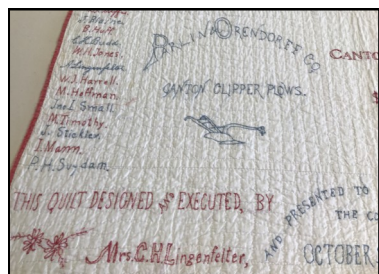 B. Hoff
W.H. Jones.
N. Lingenfelter
W.J. Harrell.
M. Hoffman
Joel Small
M. Timothy.
J. Stickler.
I. Mann.
P.H. Suydam.
PARLIN & ORENDORFF CO
CANTON CLIPPER PLOWS.
CANTO
THIS QUILT DESIGNED AND EXECUTED, BY
Mrs. C.H. Lingenfelter,
AND PRESENTED TO
THE CO
OCTOBER